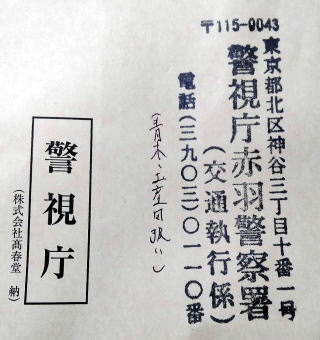 〒115-0043
東京都北区神谷三丁目十番一号
警視庁赤羽警察署
(交通執行係)
電話(三九〇三)〇一一〇番
警視庁
(株式会社高春堂 納)